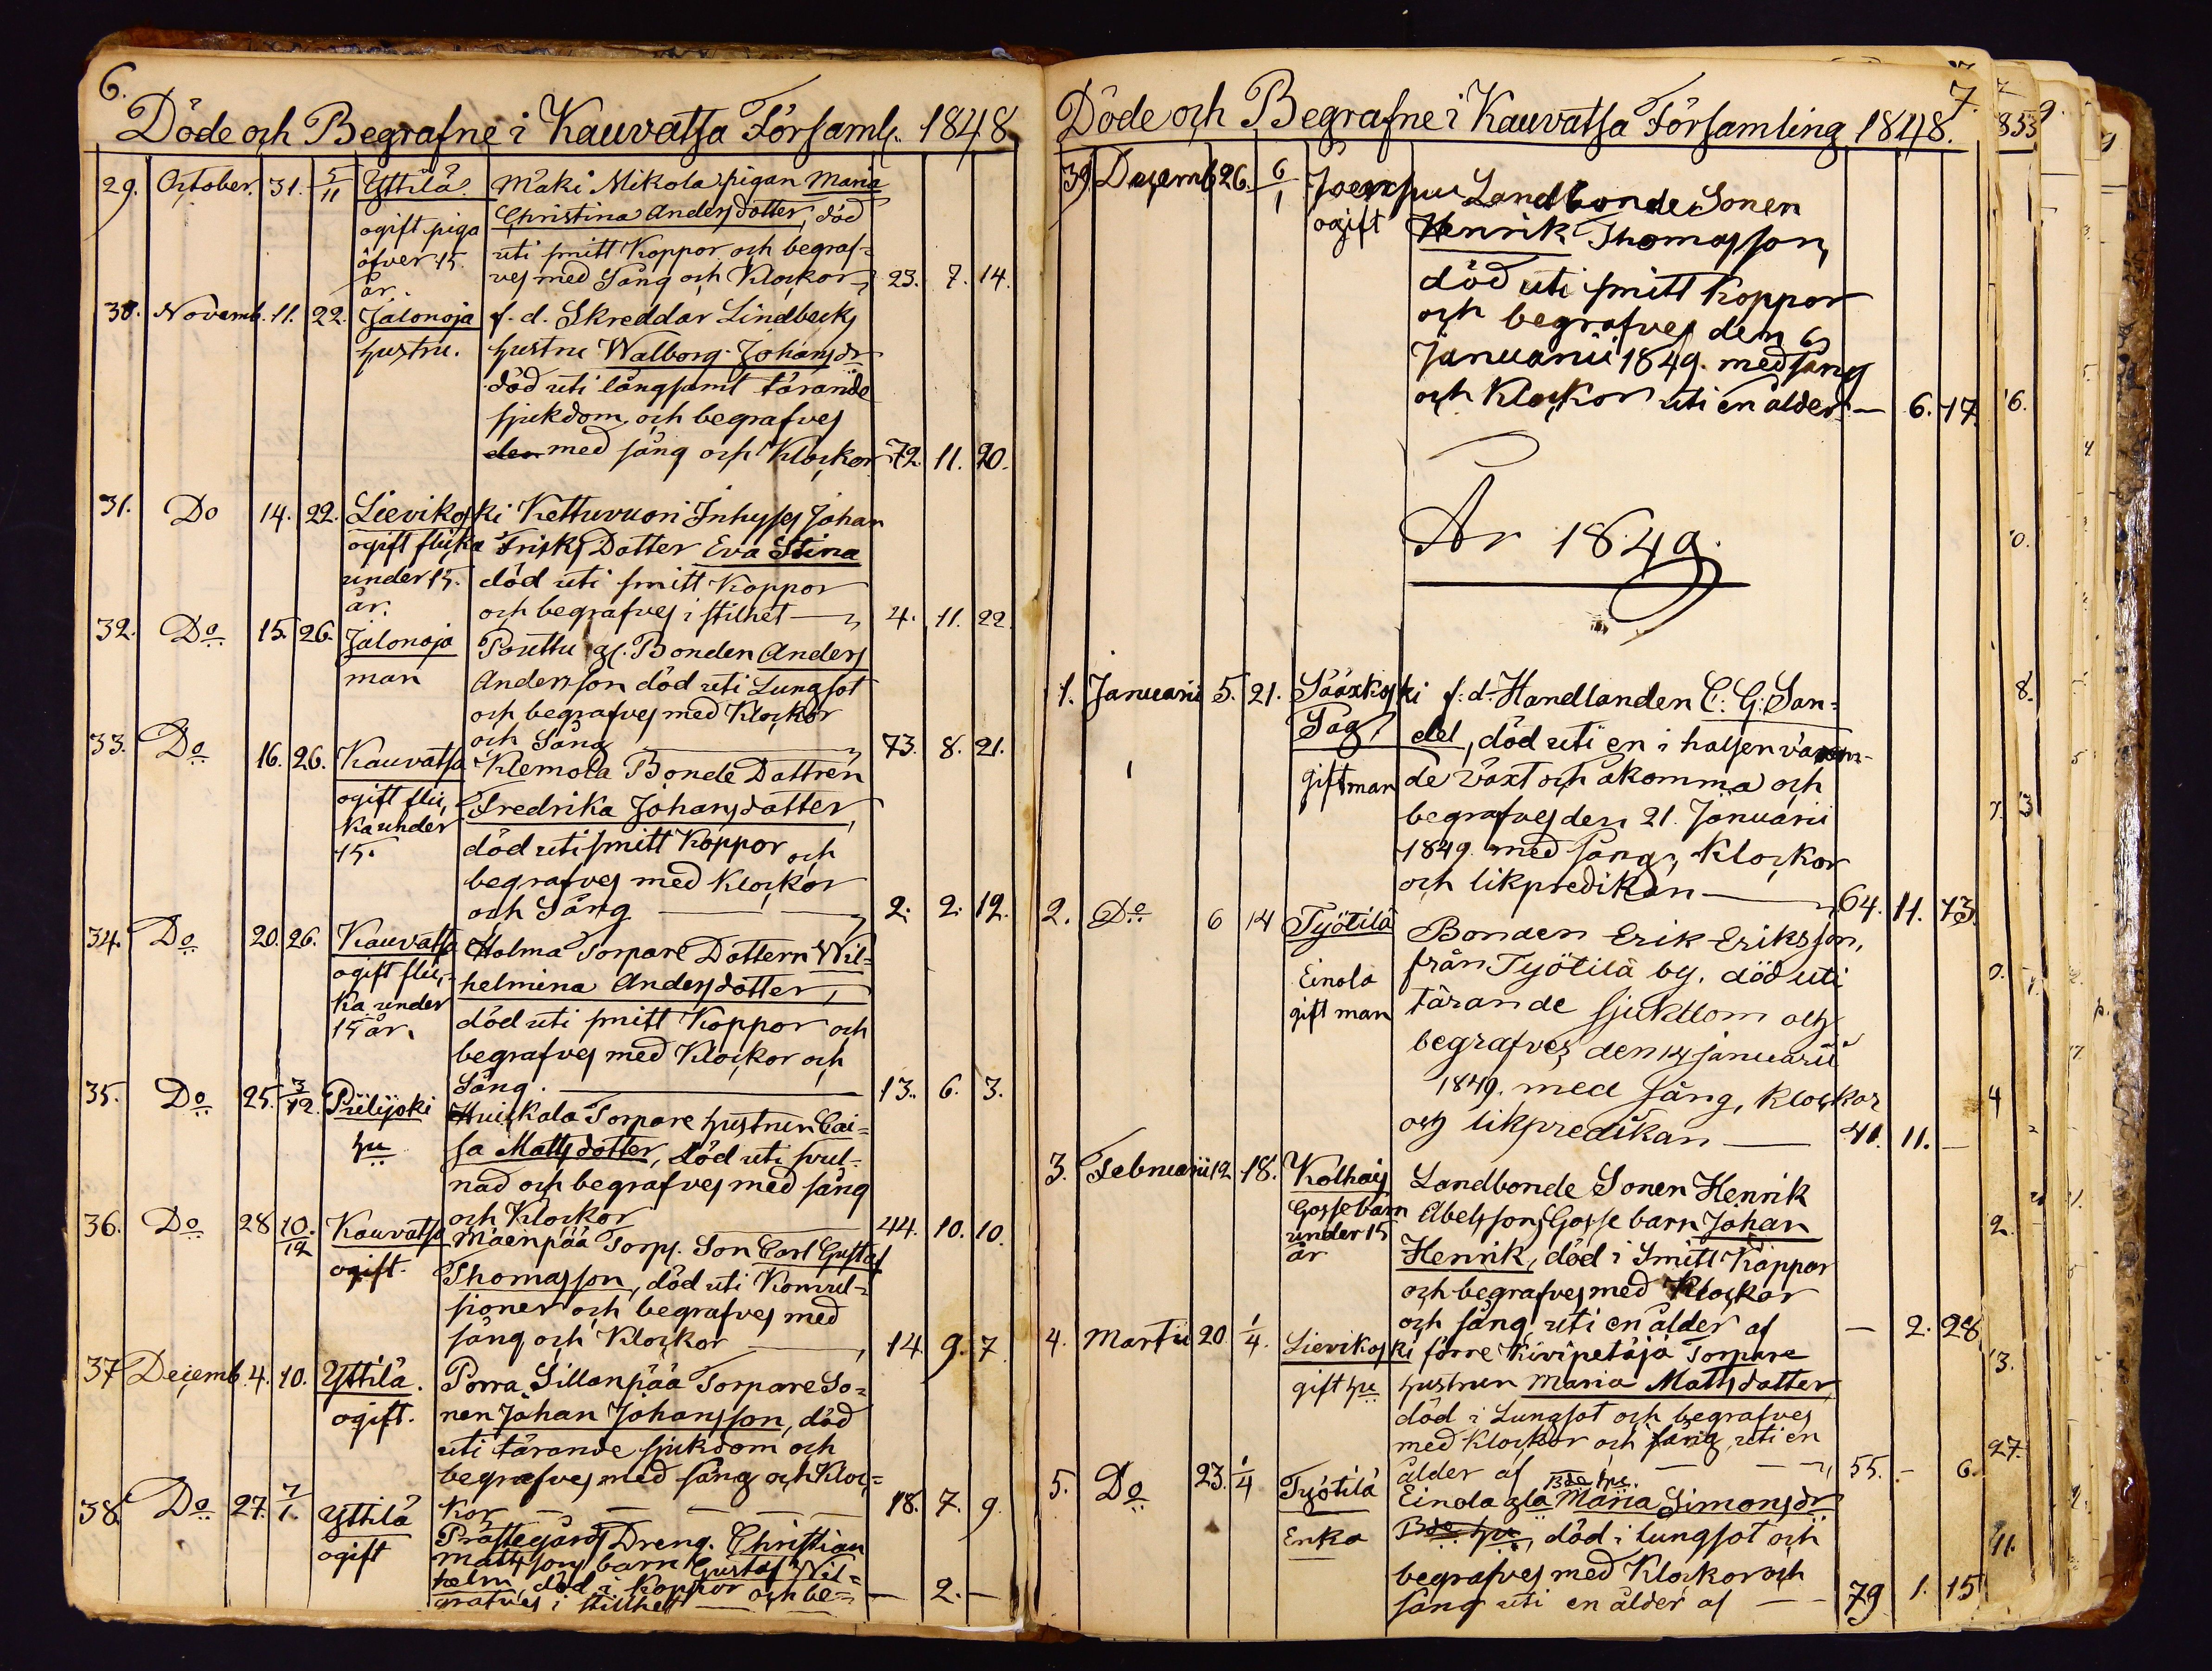 6.
Döde och Begrafne i Kauvatsa Församl. 1848
29. October. 31. 5/11 Yttilä. Mäki Mikola pigan Maria
ogift piga Christina Andersdotter, död
öfver 15. uti smitt Koppor och begraf-
år. ves med Sång och Klockor 23. 7. 14.
30. Novemb. 11. 22. Jalonoja f. d. Skreddar Lindbecks
hustru. hustru Walborg Johansdr
död uti långsamt tärande
sjukdom, och begrafves
den med sång och Klockor 72. 11. 20.
31. Do 14. 22. Lievikoski Kettuvuori Inhyses Johan
ogift flicka Frisks Dotter Eva Stina
under 15. död uti smitt Koppor
år. och begrafves i stilhet 4. 11. 22.
32. Do 15. 26. Jalonoja Pouttu gl. Bonden Anders
man Andersson död uti Lungsot
och begrafves med Klockor
och Sång 73. 8. 21.
33. Do 16. 26. Kauvatsa Klemola Bonde Dottren
ogift flic- Fredrika Johansdotter,
ka under död uti smitt Koppor och
15. begrafves med Klockor
och Sång 2. 2. 12.
34. Do 20. 26. Kauvatsa Holma Torpare Dottern Wil-
ogift flic- helmina Andersdotter,
ka under död uti smitt Koppor och
15 år. begrafves med Klockor och
Sång. 13. 6. 3.
35. Do 25. 3/12. Piilijoki Huiskala Torpare hustrun Cai-
hu sa Mattsdotter, död uti svul-
nad och begrafves med sång
och Klockor 44. 10. 10.
36. Do 28 10/12 Kauvatsa Mäenpää Torps. Son Carl Gustaf
ogift. Thomasson, död uti Konvul-
sioner och begrafves med
sång och Klockor 14. 9. 7.
37 Decemb. 4. 10. Yttilä. Porra Sillanpää Torpare So-
ogift. nen Johan Johansson, död
uti tärande sjukdom och
begrafves med sång och Kloc-
kor 18. 7. 9.
38. Do 27. 7/1. Yttilä Prästegårds Dreng. Christian
ogift Mattssons barn Gustaf Wil-
helm, död i Koppor och be-
grafves i stillhet — 2. —
7.
Döde och Begrafne i Kauvatsa Församling 1848.
39. Decemb. 26. 6/1 Joensuu Landbonde Sonen
ogift Henrik Thomasson,
död uti smitt Koppor
och begrafves den 6
Januarii 1849. med sång
och Klockor uti en ålder — 6. 17.
År 1849.
1. Januarii 5. 21. Sääxkoski f. d. Handlanden C. G. San-
Såg. del, död uti en i halsen varan-
gift man de växt och åkomma och
begrafves den 21. Januarii
1849. med sång, Klockor
och likpredikan 64. 11. 13.
2. Do 6 14 Työtilä Bonden Erik Eriksson,
Einola från Työtilä by, död uti
gift man tärande sjukdom och
begrafves den 14 januarii
1849. med sång, Klockor
och likpredikan — 41. 11. —
3. Februarii 12 18. Kolhais Landbonde Sonen Henrik
Gossebarn Abelssons Gosse barn Johan
under 15 Henrik, död i Smitt Koppor
år och begrafves med Klockor
och sång, uti en ålder af — 2. 28
4. Martii 20 1/4. Lievikoski förre Kivipetäjä Torpare
gift hu hustrun Maria Mattsdotter
död i Lungsot och begrafves
med Klockor och sång, uti en
ålder af 55. — 6.
5. Do 23. 1/4 Työtilä Einola gla Bde hu. Maria Simonsdr
Enka Bde hu, död i lungsot och
begrafves med Klockor och
sång uti en ålder af 79 1. 15